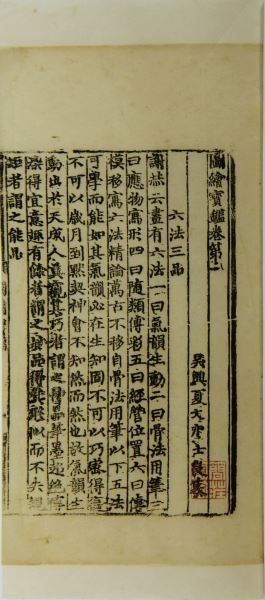 圖繪寶鑑卷第一
吳興夏文彥士良纂
六法三品
謝赫云畫有六法一曰氣韻生動二曰骨法用筆三
曰應物寫形四曰隨類傅彩五曰經營位置六曰傳
模移寫六法精論萬古不移自骨法用筆以下五法
可學而能如其氣韻必在生知固不可以巧密得復
不可以歲月到默契神會不知然而然也故氣韻生
動出於天成人莫窺其巧者謂之神品筆墨超絶傅
染得宜意趣有餘者謂之妙品得其形似而不失規
矩者謂之能品